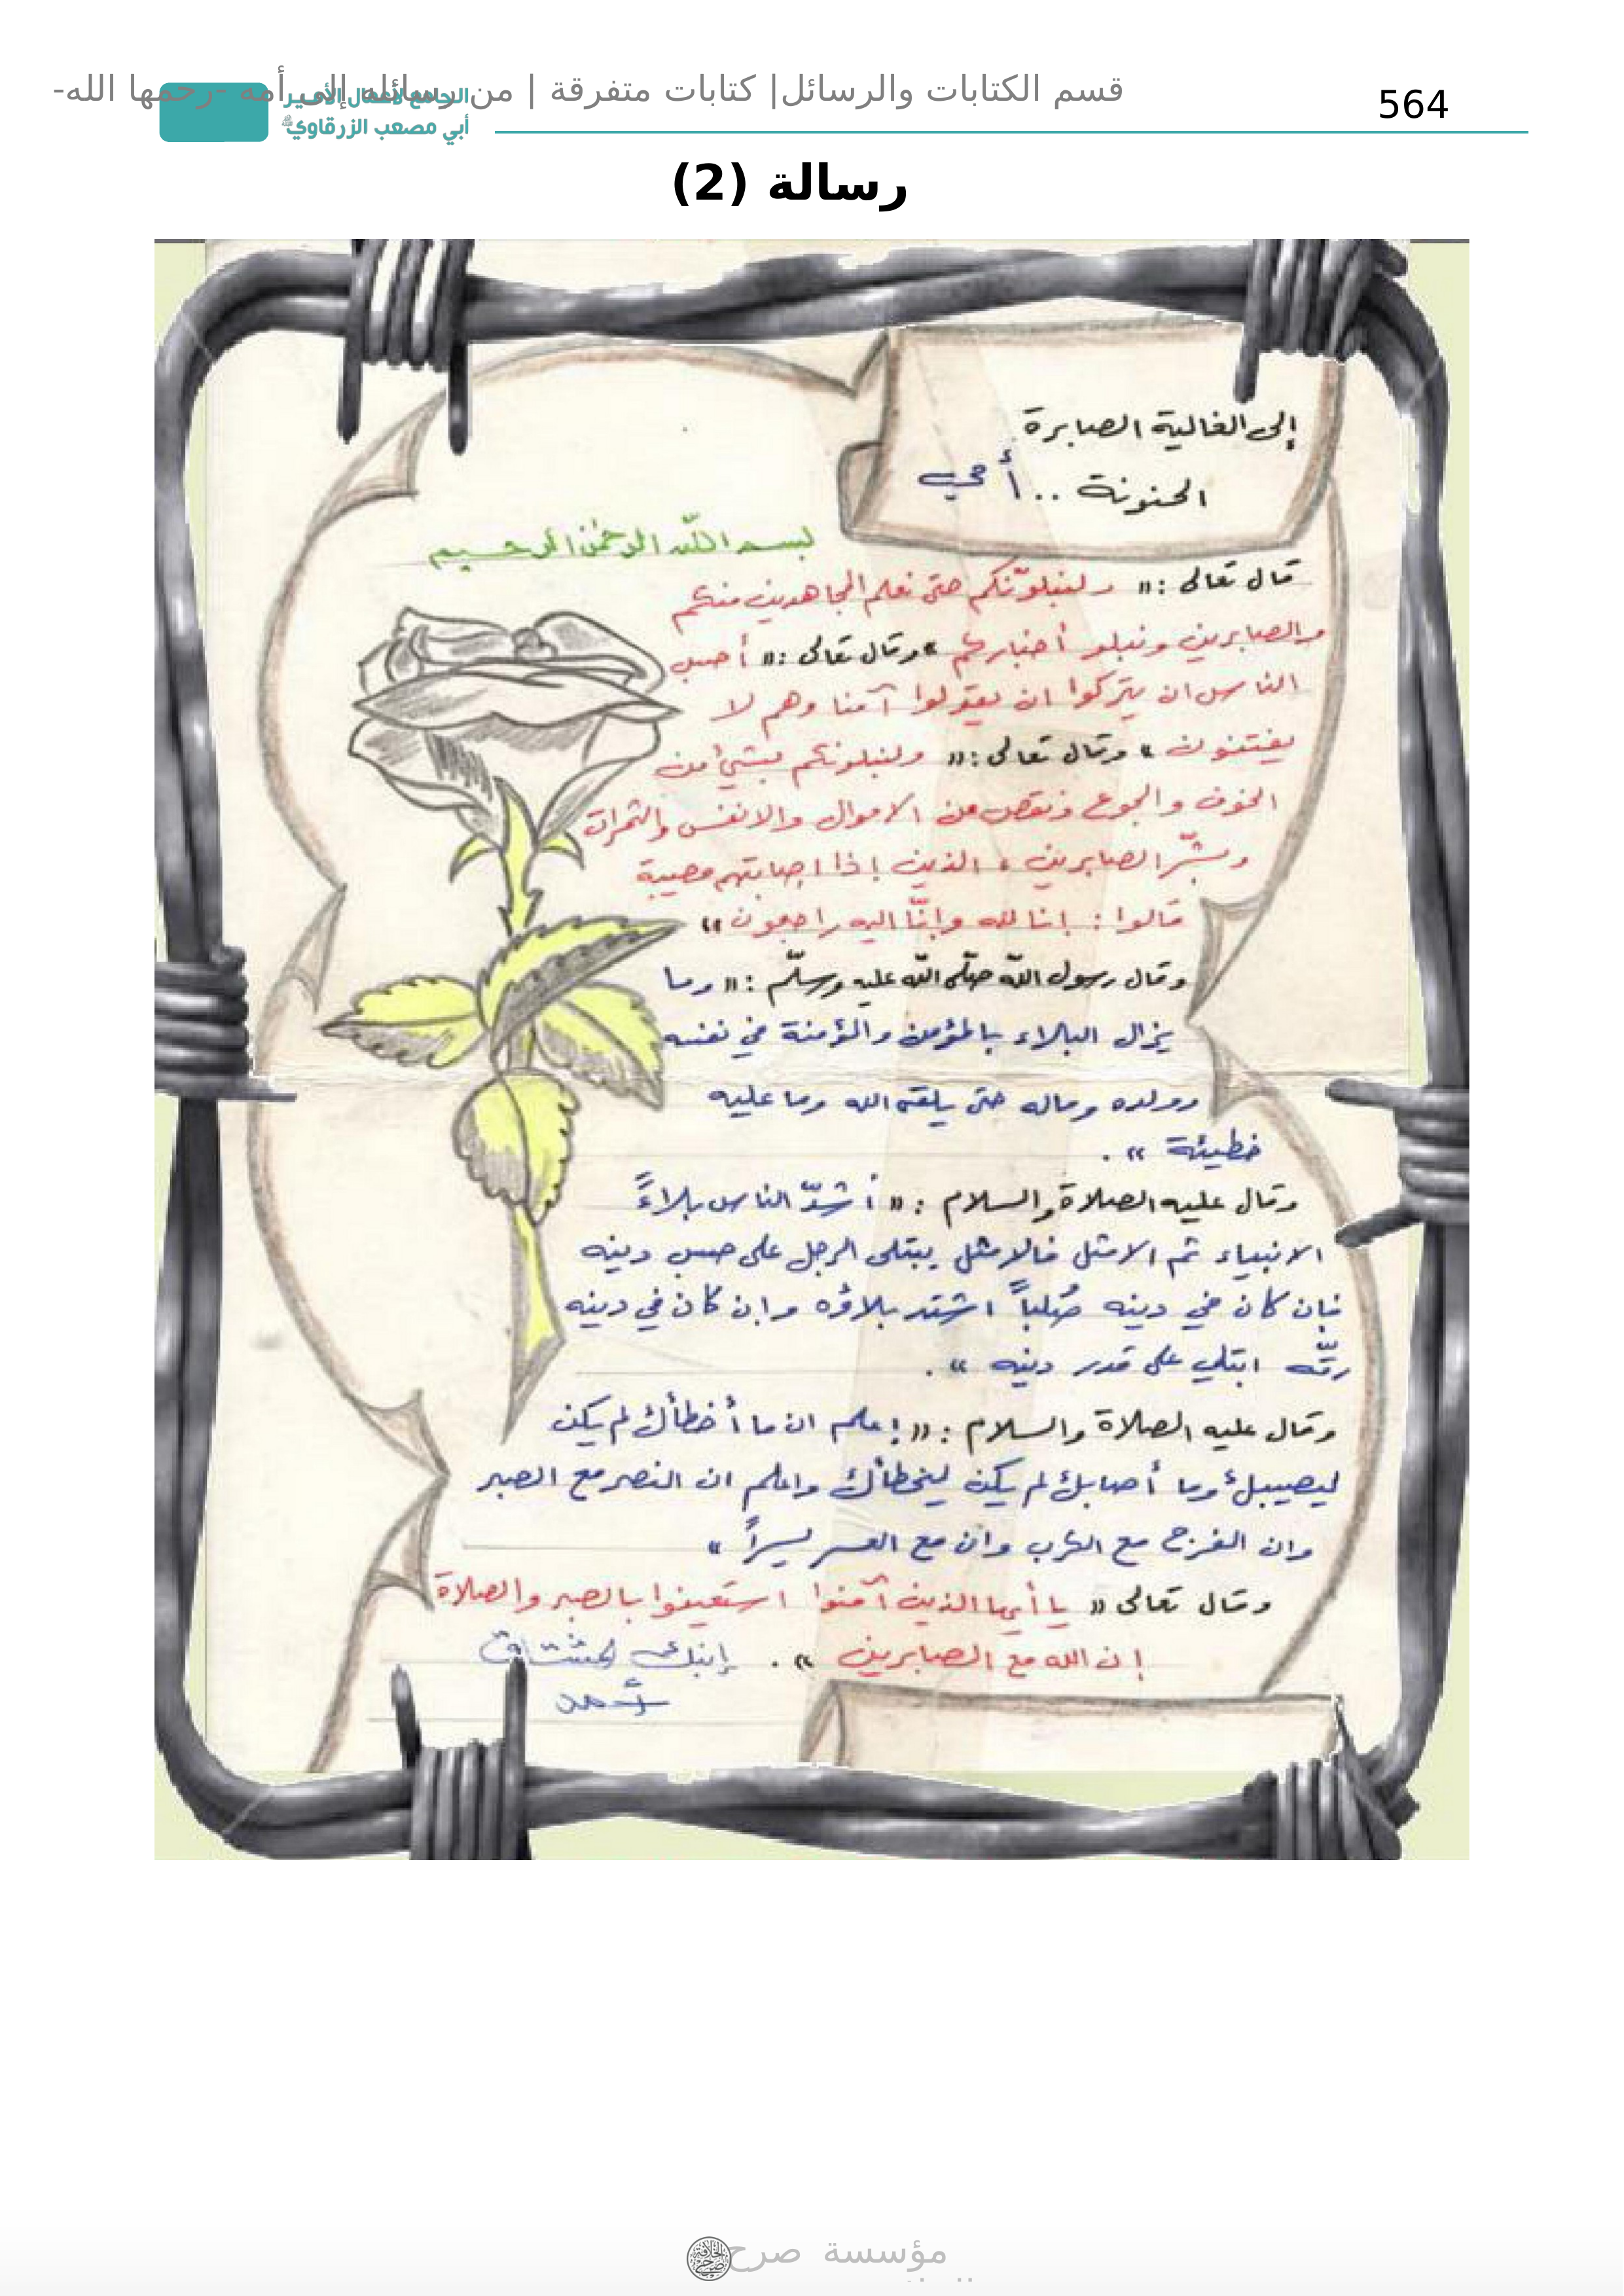 قسم الكتابات والرسائل| كتابات متفرقة | من رسائله إلى أمه -رحمها الله-
الجامع لأعمال الأمير
أبي مصعب الزرقاوي
564
رسالة (2)
إلى الغالية الصابرة
الحنونة .. أمي
بسم الله الرحمن الرحيم
قال تعالى :« ولنبلونّكم حتى نعلم المجاهدين منكم
والصابرين ونبلو أخباركم » وقال تعالى :« أحسب
الناس ان يتركوا ان يقولوا آمنا وهم لا
يفتنون » وقال تعالى :« ولنبلونكم بشيئ من
الخوف والجوع ونقص من الاموال والانفس والثمرات
وبشّر الصابرين ، الذين إذا اصابتهم مصيبة
قالوا : إنا لله وإنّا اليه راجعون »
وقال رسول اللّه صلّى اللّه عليه وسلّم :« وما
يزال البلاء بالمؤمن والمؤمنة في نفسه
وولده وماله حتى يلقى الله وما عليه
خطيئة » .
وقال عليه الصلاة والسلام : « أشدّ الناس بلاءً
الانبياء ثم الامثل فالامثل يبتلى الرجل على حسب دينه
فإن كان في دينه صُلباً اشتد بلاؤه وإن كان في دينه
رقّه ابتلي على قدر دينه » .
وقال عليه الصلاة والسلام :« إعلم ان ما أخطأك لم يكن
ليصيبك وما أصابك لم يكن ليخطأك واعلم ان النصر مع الصبر
وان الفرج مع الكرب وان مع العسر يسراً »
وقال تعالى « يا أيها الذين آمنوا استعينوا بالصبر والصلاة
إن الله مع الصابرين » . إبنك المشتاق
أحمد
مؤسسة صرح